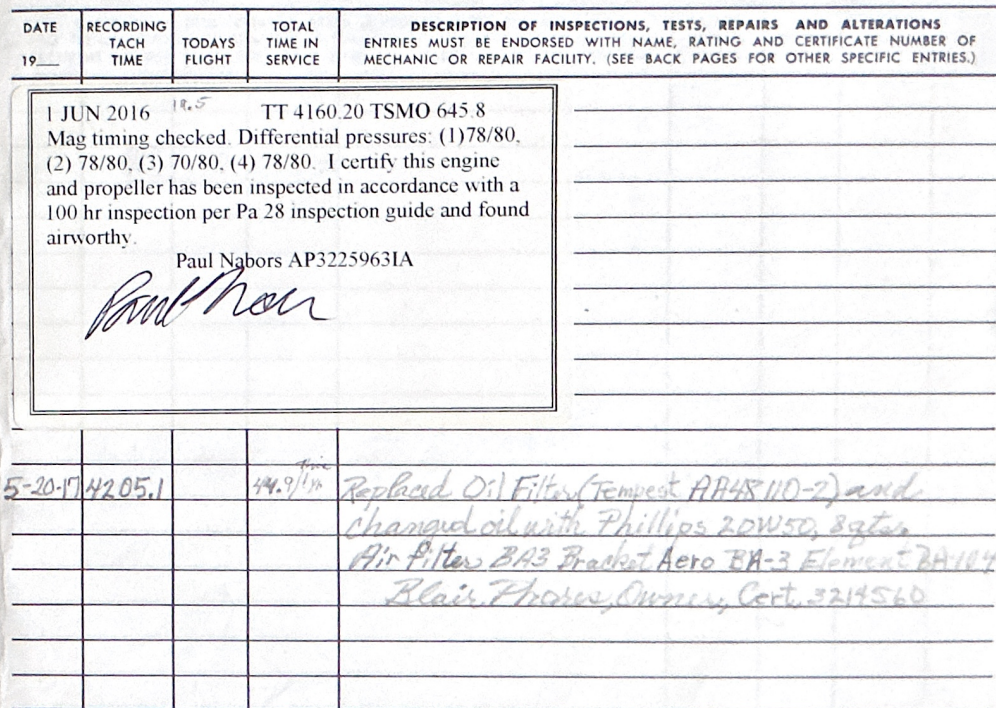 DATE
19
RECORDING
TACH
TIME
TODAYS
FLIGHT
TOTAL
TIME IN
SERVICE
DESCRIPTION OF INSPECTIONS, TESTS, REPAIRS AND ALTERATIONS
ENTRIES MUST BE ENDORSED WITH NAME, RATING AND CERTIFICATE NUMBER OF
MECHANIC OR REPAIR FACILITY. (SEE BACK PAGES FOR OTHER SPECIFIC ENTRIES.)
1 JUN 2016 19.5 TT 4160.20 TSMO 645.8
Mag timing checked. Differential pressures: (1)78/80,
(2) 78/80, (3) 70/80, (4) 78/80. I certify this engine
and propeller has been inspected in accordance with a
100 hr inspection per Pa 28 inspection guide and found
airworthy.
Paul Nabors AP3225963IA
5-20-17 4205.1 44.9 Replaced Oil Filter (Tempest AA48110-2) and
changed oil with Phillips 20W50, 8 qts.
Air filter BA3 Bracket Aero BA-3 Element
Blair Phares, Owner, Cert. 3214560